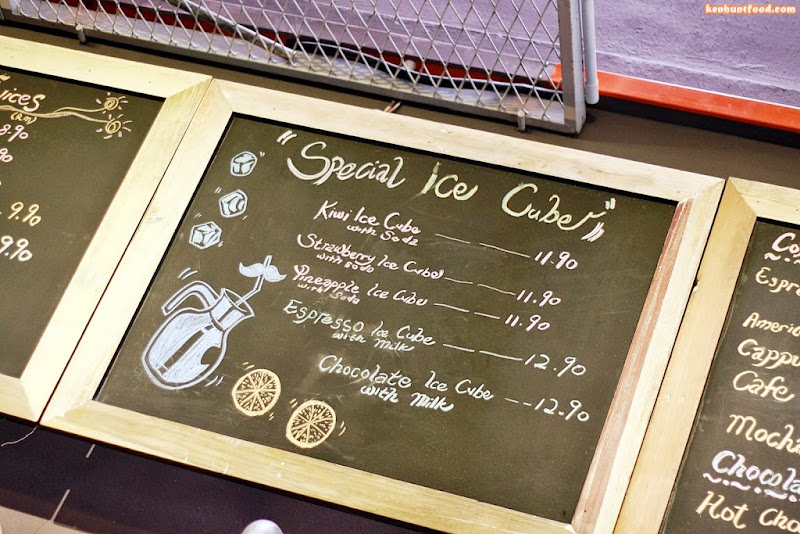 kenhuntfood.com
ices
(RM)
8.90
9.90
9.90
"Special Ice Cubes"
Kiwi Ice Cube
with Soda
11.90
Strawberry Ice Cubes
with soda
11.90
Pineapple Ice Cube
with Soda
11.90
Espresso Ice Cube
with Milk
12.90
Chocolate Ice Cube
with Milk
12.90
Co
Espr
Ameri
Cappu
Cafe
Mocha
Chocola
Hot Cho